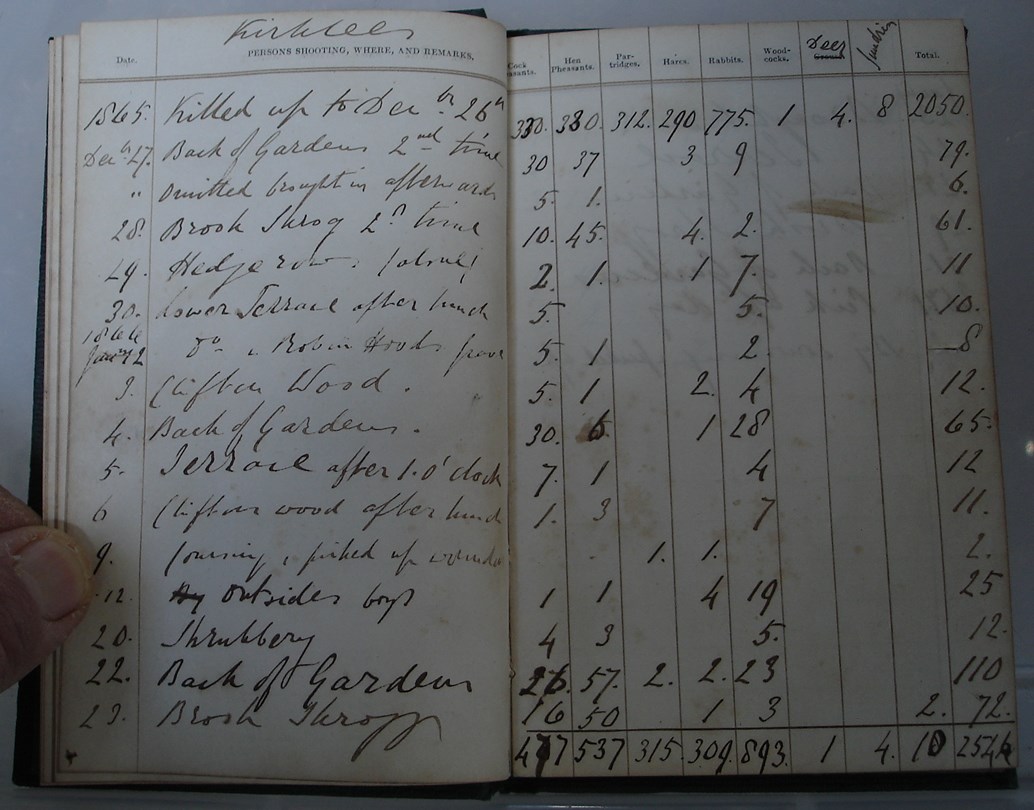 Kirklees
Date. PERSONS SHOOTING, WHERE, AND REMARKS. Cock Pheasants. Hen Pheasants. Par-tridges. Hares. Rabbits. Wood-cocks. Deer Sundries Total.
1865. Killed up to Decbr. 26th 330. 380. 312. 290 775. 1 4. 8 2050.
Decbr 27. Back of Gardens 2nd time 30 37 3 9 79.
" omitted brought in afterwards 5. 1. 6.
28. Brook Shrog 2d time 10. 45. 4. 2. 61.
29. Hedgerows 2. 1. 1 7. 11
30. Lower Terrace after lunch 5. 5. 10.
1866
Jany 2 Do Robin Hoods grave 5. 1 2 8
3. Clifton Wood. 5. 1 2. 4 12.
4. Back of Gardens. 30. 6. 1 28 65.
5. Terrace after 1.o'clock 7. 1 4 12
6 Clifton wood after lunch 1. 3 7 11.
9. Coursing, picked up wounded 1. 1. 2.
12. outsides boys 1 1 4 19 25
20. Shrubbery 4 3 5. 12.
22. Back of Gardens 26. 57. 2. 2. 23 110
23. Brook Shrogg 16 50 1 3 2. 72.
477 537 315. 309. 893. 1 4. 10 2546